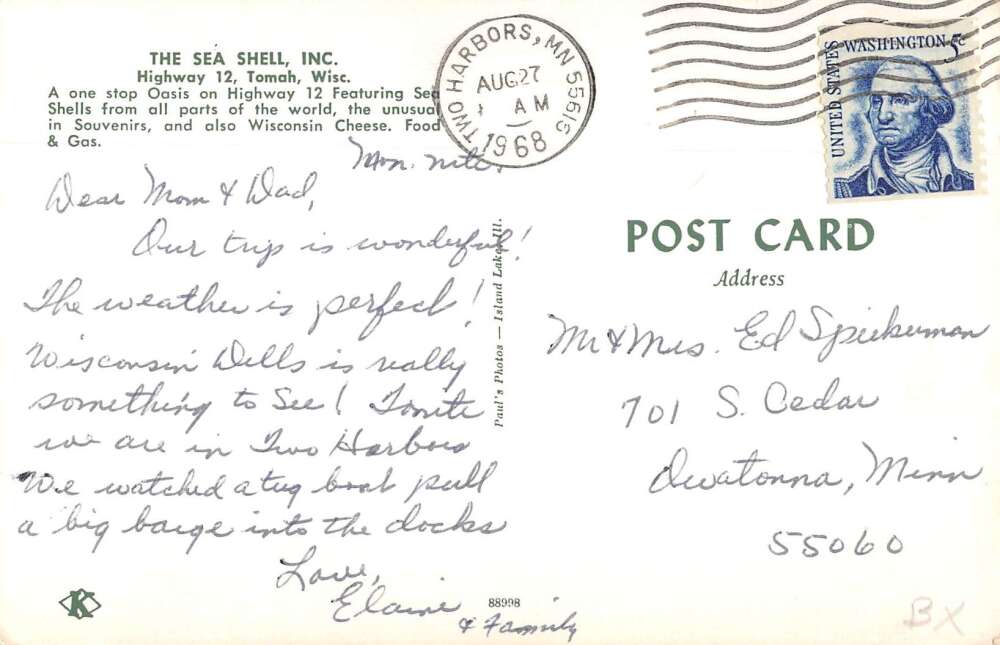 THE SEA SHELL, INC.
Highway 12, Tomah, Wisc.
A one stop Oasis on Highway 12 Featuring Sea
Shells from all parts of the world, the unusual
in Souvenirs, and also Wisconsin Cheese. Food
& Gas.
TWO HARBORS, MN 55616
AUG 27
AM
1968
UNITED STATES
WASHINGTON 5c
Mon. nite.
Dear Mom & Dad,
Our trip is wonderful!
The weather is perfect!
Wisconsin Dells is really
something to see! Tonite
we are in Two Harbors
We watched a tug boat pull
a big barge into the docks
Love,
Elaine
& Family
Paul's Photos — Island Lake, Ill.
POST CARD
Address
Mr & Mrs. Ed Spiekerman
701 S. Cedar
Owatonna, Minn
55060
K
88998
BX